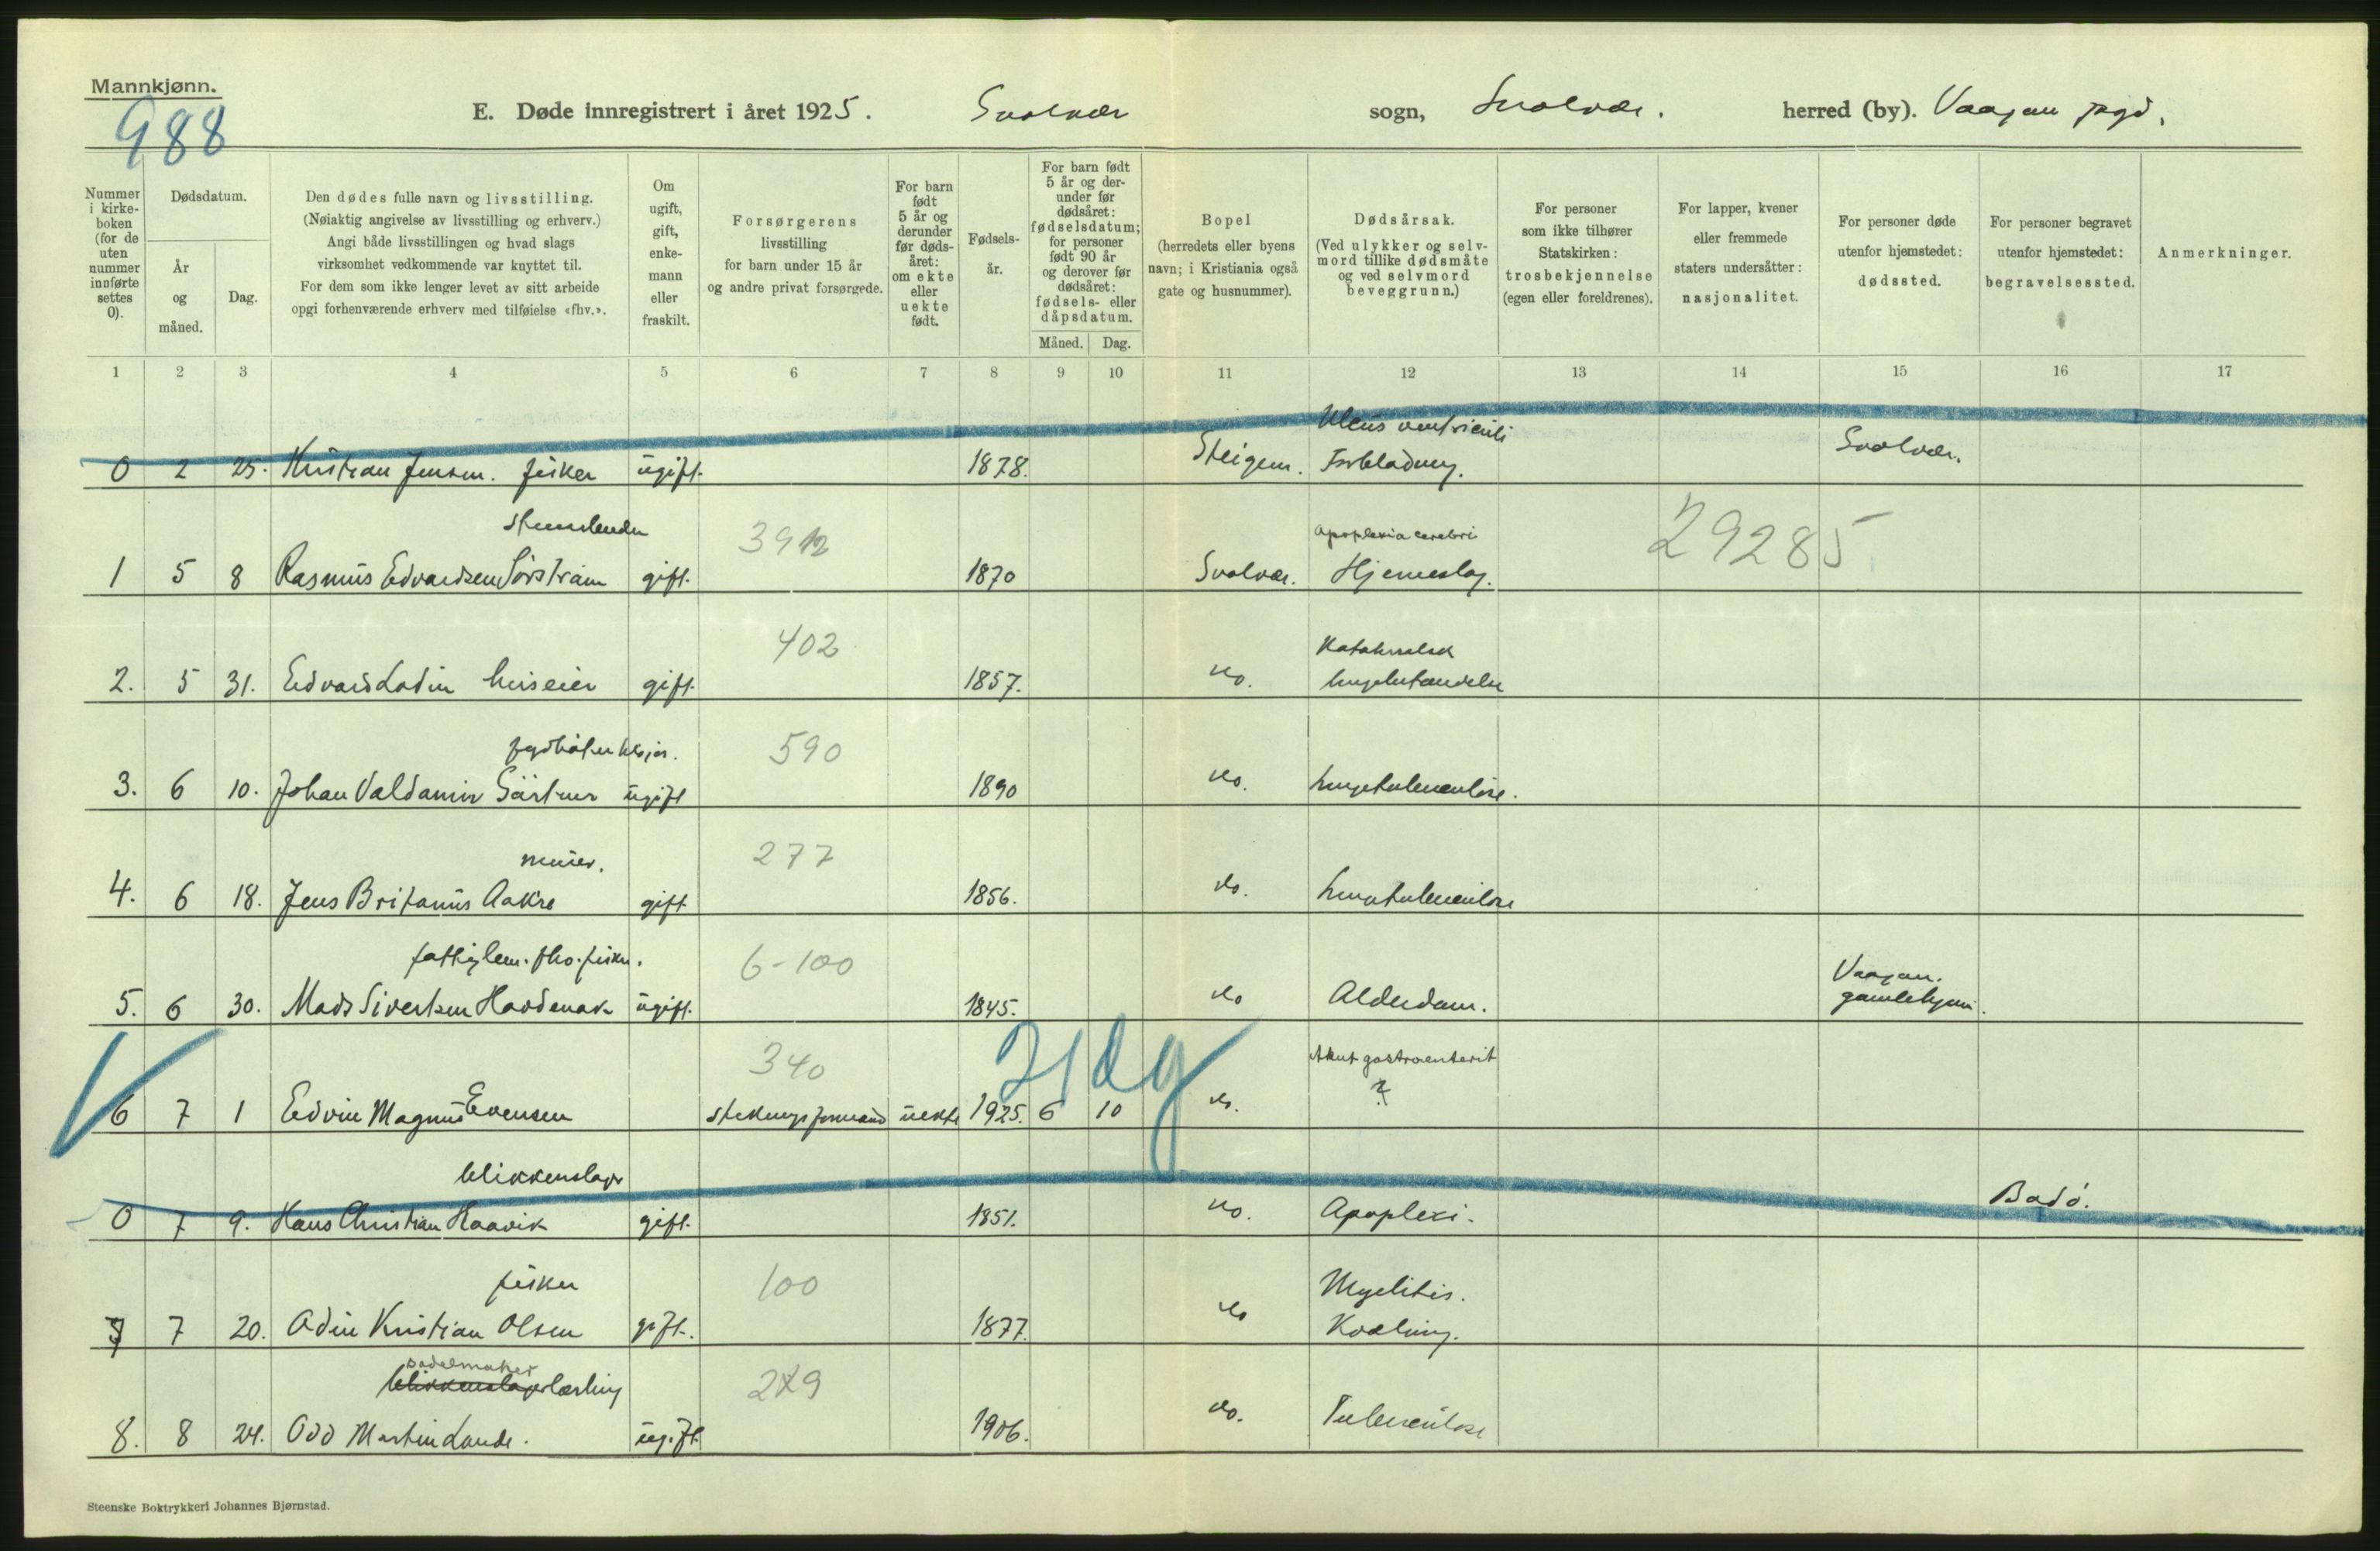 Mannkjønn.
988
E. Døde innregistrert i året 1925. Svolvær sogn, Svolvær. herred (by). Vaagan pgd.
Nummer i kirke-boken (for de uten nummer innførte settes 0).
Dødsdatum.
År og måned.
Dag.
Den dødes fulle navn og livsstilling.
(Nøiaktig angivelse av livsstilling og erhverv.)
Angi både livsstillingen og hvad slags
virksomhet vedkommende var knyttet til.
For dem som ikke lenger levet av sitt arbeide
opgi forhenværende erhverv med tilføielse «fhv.».
Om ugift, gift, enke-mann eller fraskilt.
Forsørgerens
livsstilling
for barn under 15 år
og andre privat forsørgede.
For barn født 5 år og derunder før døds-året: om ekte eller uekte født.
Fødsels-år.
For barn født 5 år og der-under før dødsåret: fødselsdatum; for personer født 90 år og derover før dødsåret: fødsels- eller dåpsdatum.
Måned. Dag.
Bopel
(herredets eller byens
navn; i Kristiania også
gate og husnummer).
Dødsårsak.
(Ved ulykker og selv-
mord tillike dødsmåte
og ved selvmord
beveggrunn.)
For personer
som ikke tilhører
Statskirken:
trosbekjennelse
(egen eller foreldrenes).
For lapper, kvener
eller fremmede
staters undersåtter:
nasjonalitet.
For personer døde
utenfor hjemstedet:
dødssted.
For personer begravet
utenfor hjemstedet:
begravelsessted.
Anmerkninger.
1 2 3 4 5 6 7 8 9 10 11 12 13 14 15 16 17
Ulcus ventriculi
0 2 25. Kristian Jensen. fisker ugift. 1878. Steigen. Forblødning. Svolvær.
3912 Apoplexia cerebri 29285
1 5 8 Rasmus Edvardsen Sörström gift. 1870 Svolvær. Hjerneslag.
402 Katahralsk
2. 5 31. Edvard Lodin huseier gift. 1857. do. lungebetændelse
590
3. 6 10. Johan Valdamir Gärtner ugift 1890 do. lungetuberculose.
277
4. 6 18. Jens Britanus Aakre gift. 1856. do. lungetuberculose
fattiglem. fhv. fisker. 6-100 Vaagan
5. 6 30. Mads Sivertsen Havdenak ugift. 1845. do Alderdom. gamlehjem.
340 21 dg Akut gastroenterit
6 7 1 Edvin Magnus Evensen uekte 1925. 6 10 do. ?
blikkenslager
0 7 9. Hans Christian Haavik gift. 1851. do. Apoplexi. Bodø.
fisker 100 Myelitis.
7 7 20. Odin Kristian Olsen gift. 1877. do Kvæling.
sadelmaker
blikkenslagerlærling 2X9
8. 8 24. Odd Martin Lande. ugift. 1906. do. Tuberculose
Steenske Boktrykkeri Johannes Bjørnstad.